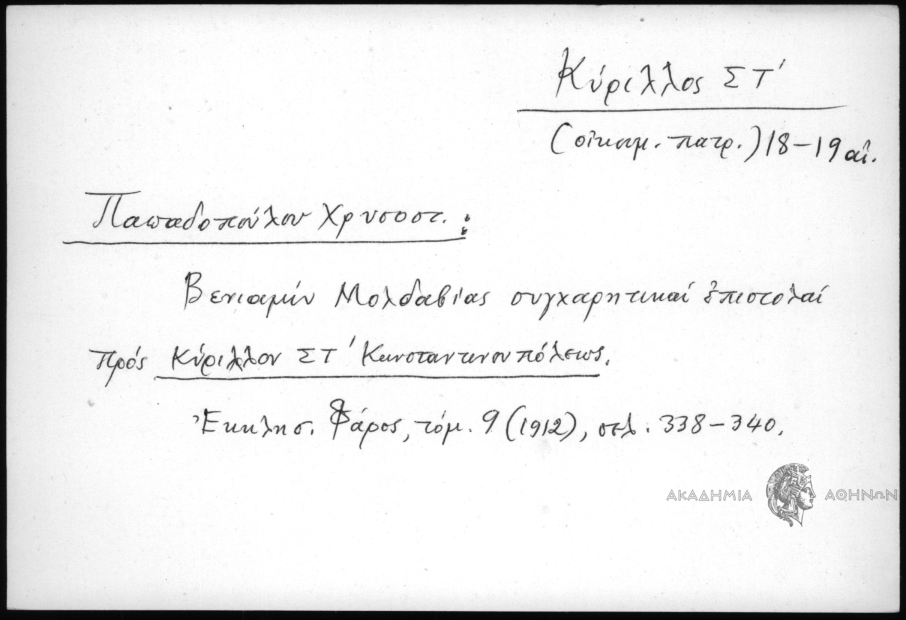 Κύριλλος ΣΤ΄
(οἰκουμ. πατρ.) 18-19 αἰ.
Παπαδοπούλου Χρυσοστ. :
Βενιαμίν Μολδαβίας συγχαρητικαί ἐπιστολαί
πρός Κύριλλον ΣΤ΄ Κωνσταντινουπόλεως.
Ἐκκλησ. Φάρος, τόμ. 9 (1912), σελ. 338-340.
ΑΚΑΔΗΜΙΑ ΑΘΗΝΩΝ